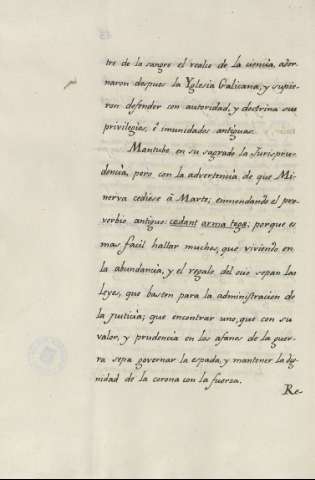 tre de la sangre el realce de la ciencia, ador-
naron despues la Yglesia Galicana, y supie-
ron defender con autoridad, y doctrina sus
privilegios, è imunidades antiguas.
Mantube en su sagrado la Jurispru-
dencia, pero con la advertencia de que Mi-
nerva cediese à Marte, enmendando el pro-
verbio antiguo: cedant arma togæ; porque es
mas facil hallar muchos, que viviendo en
la abundancia, y el regalo del ocio sepan las
leyes, que basten para la administracion de
la justicia; que encontrar uno, que con su
valor, y prudencia en los afanes de la guer-
ra sepa governar la espada, y mantener la dig-
nidad de la corona con la fuerza.
Re-